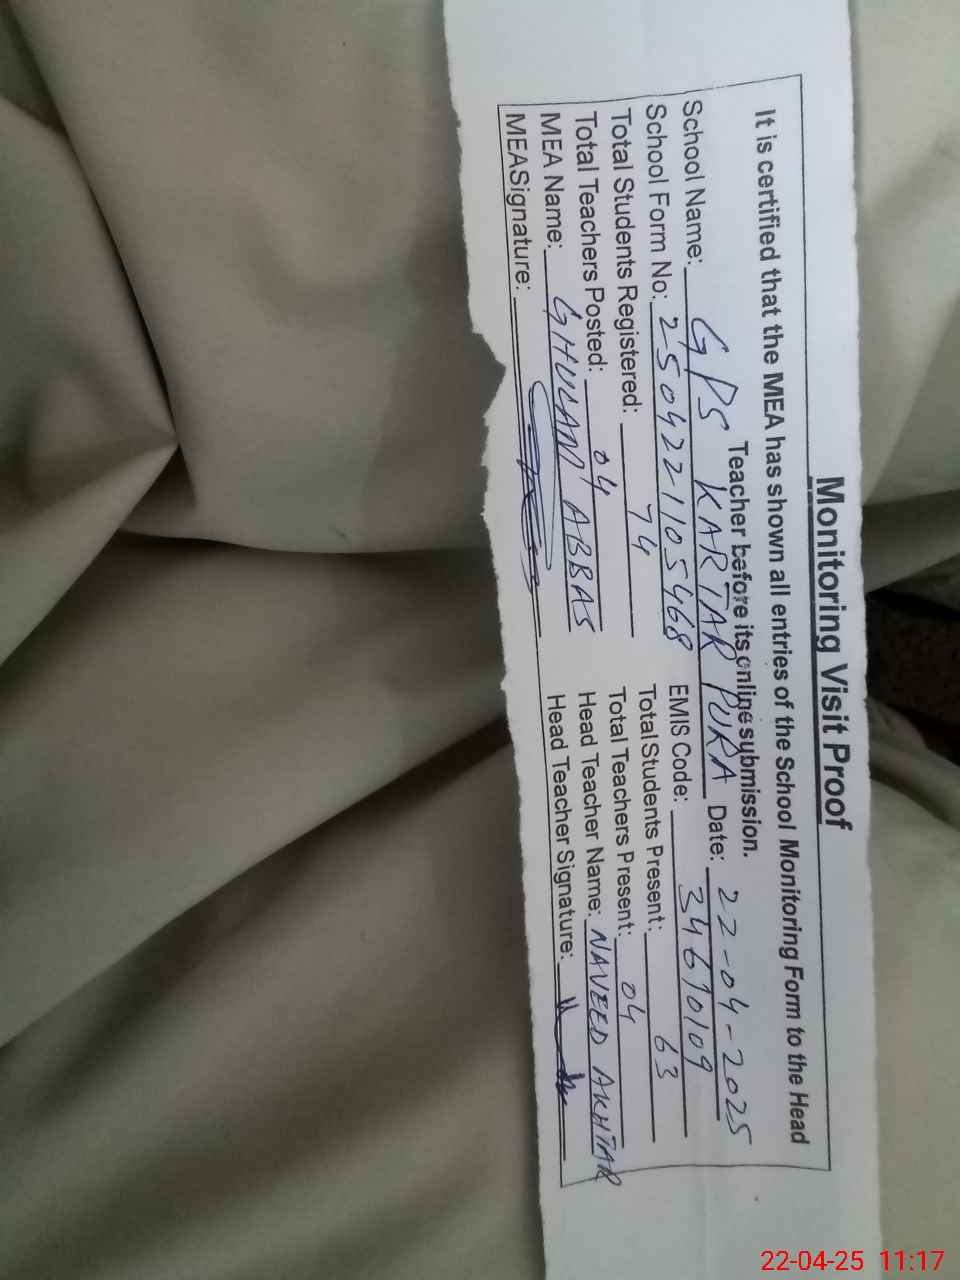 Monitoring Visit Proof
It is certified that the MEA has shown all entries of the School Monitoring Form to the Head
Teacher before its online submission.
School Name: GPS KARTAR PURA Date: 22-04-2025
School Form No: 2504221105468 EMIS Code: 34610109
Total Students Registered: 74 Total Students Present: 63
Total Teachers Posted: 04 Total Teachers Present: 04
MEA Name: GHULAM ABBAS Head Teacher Name: NAVEED AKHTAR
MEASignature: Head Teacher Signature:
22-04-25 11:17